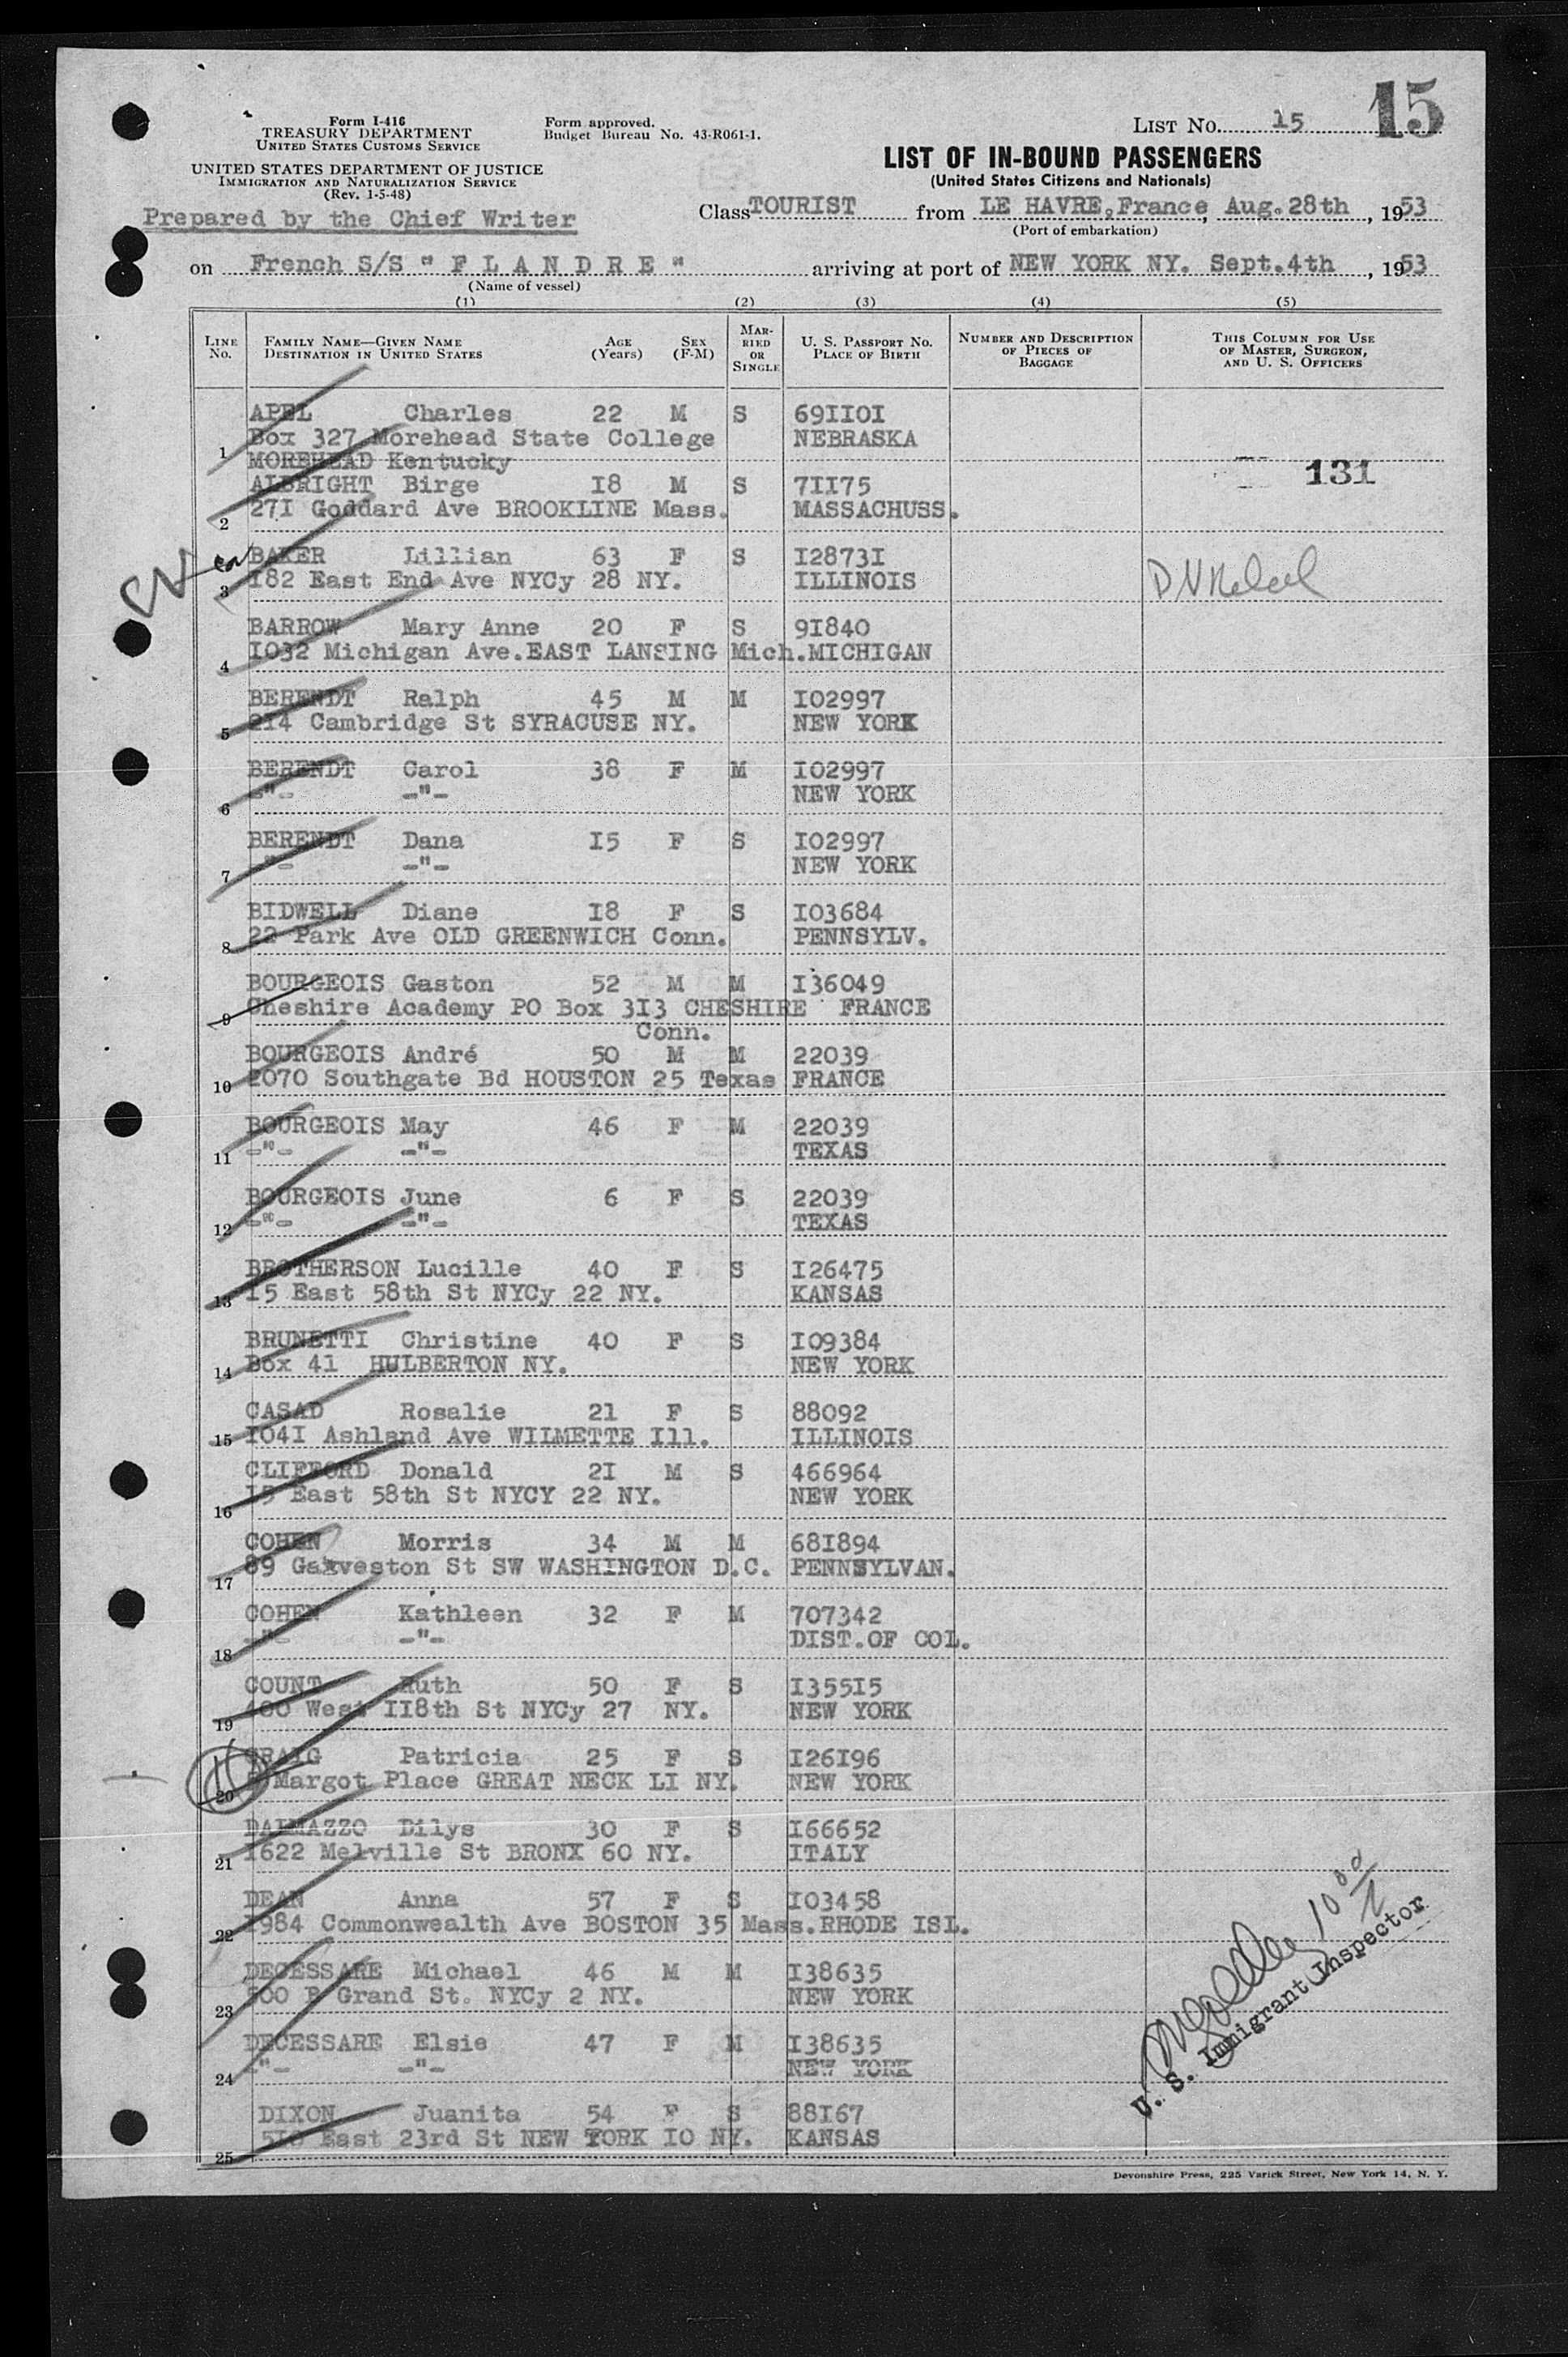 15
Form I-416
TREASURY DEPARTMENT
UNITED STATES CUSTOMS SERVICE
Form approved.
Budget Bureau No. 43-R061-1.
LIST NO. 15
UNITED STATES DEPARTMENT OF JUSTICE
IMMIGRATION AND NATURALIZATION SERVICE
(Rev. 1-5-48)
LIST OF IN-BOUND PASSENGERS
(United States Citizens and Nationals)
Prepared by the Chief Writer
Class TOURIST from LE HAVRE, France, Aug. 28th, 1953
(Port of embarkation)
on French S/S " F L A N D R E " arriving at port of NEW YORK NY. Sept.4th, 1953
(Name of vessel)
(1) (2) (3) (4) (5)
LINE No. FAMILY NAME—GIVEN NAME DESTINATION IN UNITED STATES AGE (Years) SEX (F-M) MARRIED OR SINGLE U. S. PASSPORT NO. PLACE OF BIRTH NUMBER AND DESCRIPTION OF PIECES OF BAGGAGE THIS COLUMN FOR USE OF MASTER, SURGEON, AND U. S. OFFICERS
APEL Charles 22 M S 691I0I
1 Box 327 Morehead State College NEBRASKA
MOREHEAD Kentucky
131
ALBRIGHT Birge I8 M S 7II75
2 27I Goddard Ave BROOKLINE Mass. MASSACHUSS.
BAKER Lillian 63 F S I2873I
3 I82 East End Ave NYCy 28 NY. ILLINOIS
BARROW Mary Anne 20 F S 9I840
4 I032 Michigan Ave.EAST LANSING Mich.MICHIGAN
BERENDT Ralph 45 M M I02997
5 2I4 Cambridge St SYRACUSE NY. NEW YORK
BERENDT Carol 38 F M I02997
6 -"- -"- NEW YORK
BERENDT Dana I5 F S I02997
7 -"- -"- NEW YORK
BIDWELL Diane I8 F S I03684
8 22 Park Ave OLD GREENWICH Conn. PENNSYLV.
BOURGEOIS Gaston 52 M M I36049
9 Cheshire Academy PO Box 3I3 CHESHIRE FRANCE
Conn.
BOURGEOIS André 50 M M 22039
10 2070 Southgate Bd HOUSTON 25 Texas FRANCE
BOURGEOIS May 46 F M 22039
11 -"- -"- TEXAS
BOURGEOIS June 6 F S 22039
12 -"- -"- TEXAS
BROTHERSON Lucille 40 F S I26475
13 I5 East 58th St NYCy 22 NY. KANSAS
BRUNETTI Christine 40 F S I09384
14 Box 41 HULBERTON NY. NEW YORK
CASAD Rosalie 21 F S 88092
15 I04I Ashland Ave WILMETTE Ill. ILLINOIS
CLIFFORD Donald 2I M S 466964
16 I5 East 58th St NYCY 22 NY. NEW YORK
COHEN Morris 34 M M 68I894
17 89 Galveston St SW WASHINGTON D.C. PENNSYLVAN.
COHEN Kathleen 32 F M 707342
18 -"- -"- DIST.OF COL.
COUNT Ruth 50 F S I355I5
19 400 West II8th St NYCy 27 NY. NEW YORK
CRAIG Patricia 25 F S I26I96
20 Margot Place GREAT NECK LI NY. NEW YORK
DALMAZZO Dilys 30 F S I66652
21 I622 Melville St BRONX 60 NY. ITALY
DEAN Anna 57 F S I03458
22 I984 Commonwealth Ave BOSTON 35 Mass.RHODE ISL.
DECESSARE Michael 46 M M I38635
23 500 B Grand St. NYCy 2 NY. NEW YORK
DECESSARE Elsie 47 F M I38635
24 -"- -"- NEW YORK
DIXON Juanita 54 F S 88I67
25 510 East 23rd St NEW YORK IO NY. KANSAS
U. S. Immigrant Inspector
Devonshire Press, 225 Varick Street, New York 14, N. Y.